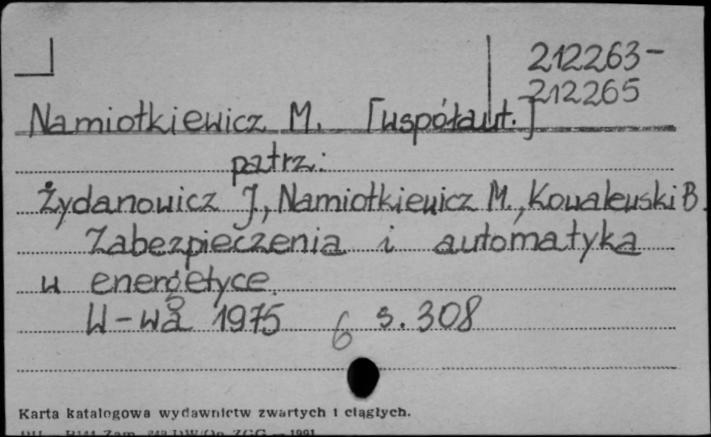 212263-
212265
Namiotkiewicz M. [współaut.]
patrz:
Żydanowicz J., Namiotkiewicz M., Kowalewski B.
Zabezpieczenia i automatyka
w energetyce.
W-wa 1975 6 s. 308
Karta katalogowa wydawnictw zwartych i ciągłych.